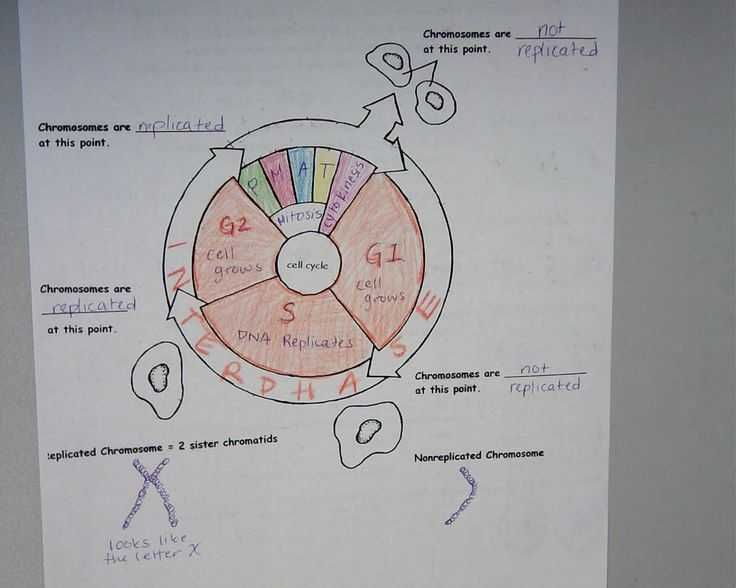 Chromosomes are not
at this point. replicated
Chromosomes are replicated
at this point.
P M A T Cytokinesis
Mitosis
G2
cell
grows
cell cycle
G1
cell
grows
S
DNA Replicates
INTERPHASE
Chromosomes are
replicated
at this point.
Chromosomes are not
at this point. replicated
eplicated Chromosome = 2 sister chromatids
Nonreplicated Chromosome
looks like
the letter X